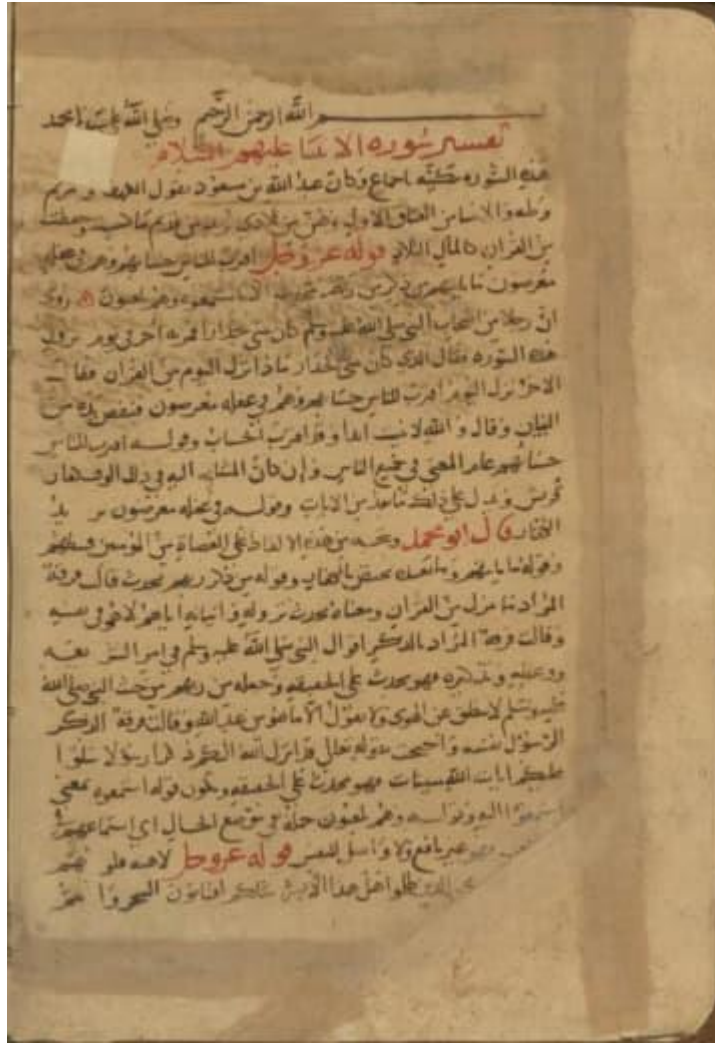 بسم الله الرحمن الرحيم وصلى الله على محمد
تفسير سورة الانبيا عليهم السلام
هذه السورة مكية باجماع وكان عبد الله بن مسعود يقول الكهف ومريم
وطه والانبيا من العتاق الاول وهن من تلادي يريد من قديم ما كسبت وحفظت
من القران كالمال التلاد قوله عز وجل اقترب للناس حسابهم وهم في غفلة
معرضون ما ياتيهم من ذكر من ربهم محدث الا استمعوه وهم يلعبون روى
ان رجلا من اصحاب النبي صلى الله عليه وسلم كان يبني جدارا فمر به اخر في يوم نزول
هذه السورة فقال الذي كان يبني الجدار ماذا نزل اليوم من القران فقال
الاخر نزل اليوم اقترب للناس حسابهم وهم في غفلة معرضون فنفض يده من
البنيان وقال والله لا بنيت ابدا وقد اقترب الحساب وقوله اقترب للناس
حسابهم عام المعنى في جميع الناس وان كان المشار اليه في ذلك الوقت كفار
قريش ويدل على ذلك ما بعد من الايات وقوله في غفلة معرضون يريد
الكفار قال ابو محمد ويتجه من هذه الالفاظ على العصاة من المؤمنين قسطهم
وقوله ما ياتيهم وما بعده مختص بالكفار وقوله من ذكر من ربهم محدث قالت فرقة
المراد ما نزل من القران ومعناه محدث نزوله واتيانه اياهم لا هو في نفسه
وقالت فرقة المراد بالذكر اقوال النبي صلى الله عليه وسلم في امر الشريعة
ووعظه وتذكيره فهو محدث على الحقيقة وجعله من ربهم من حيث النبي صلى الله
عليه وسلم لا ينطق عن الهوى ولا يقول الا ما هو من عند الله وقالت فرقة الذكر
الرسول نفسه واحتجت بقوله تعالى قد انزل الله اليكم ذكرا رسولا يتلوا
عليكم ايات الله مبينات فهو محدث على الحقيقة ويكون قوله استمعوه بمعنى
استمعوا اليه وقوله وهم يلعبون جملة في موضع الحال اي استماعهم
فهو غير نافع ولا واصل للنفس قوله عز وجل لاهية قلوبهم
الذين ظلموا هل هذا الا بشر مثلكم افتاتون السحر وانتم